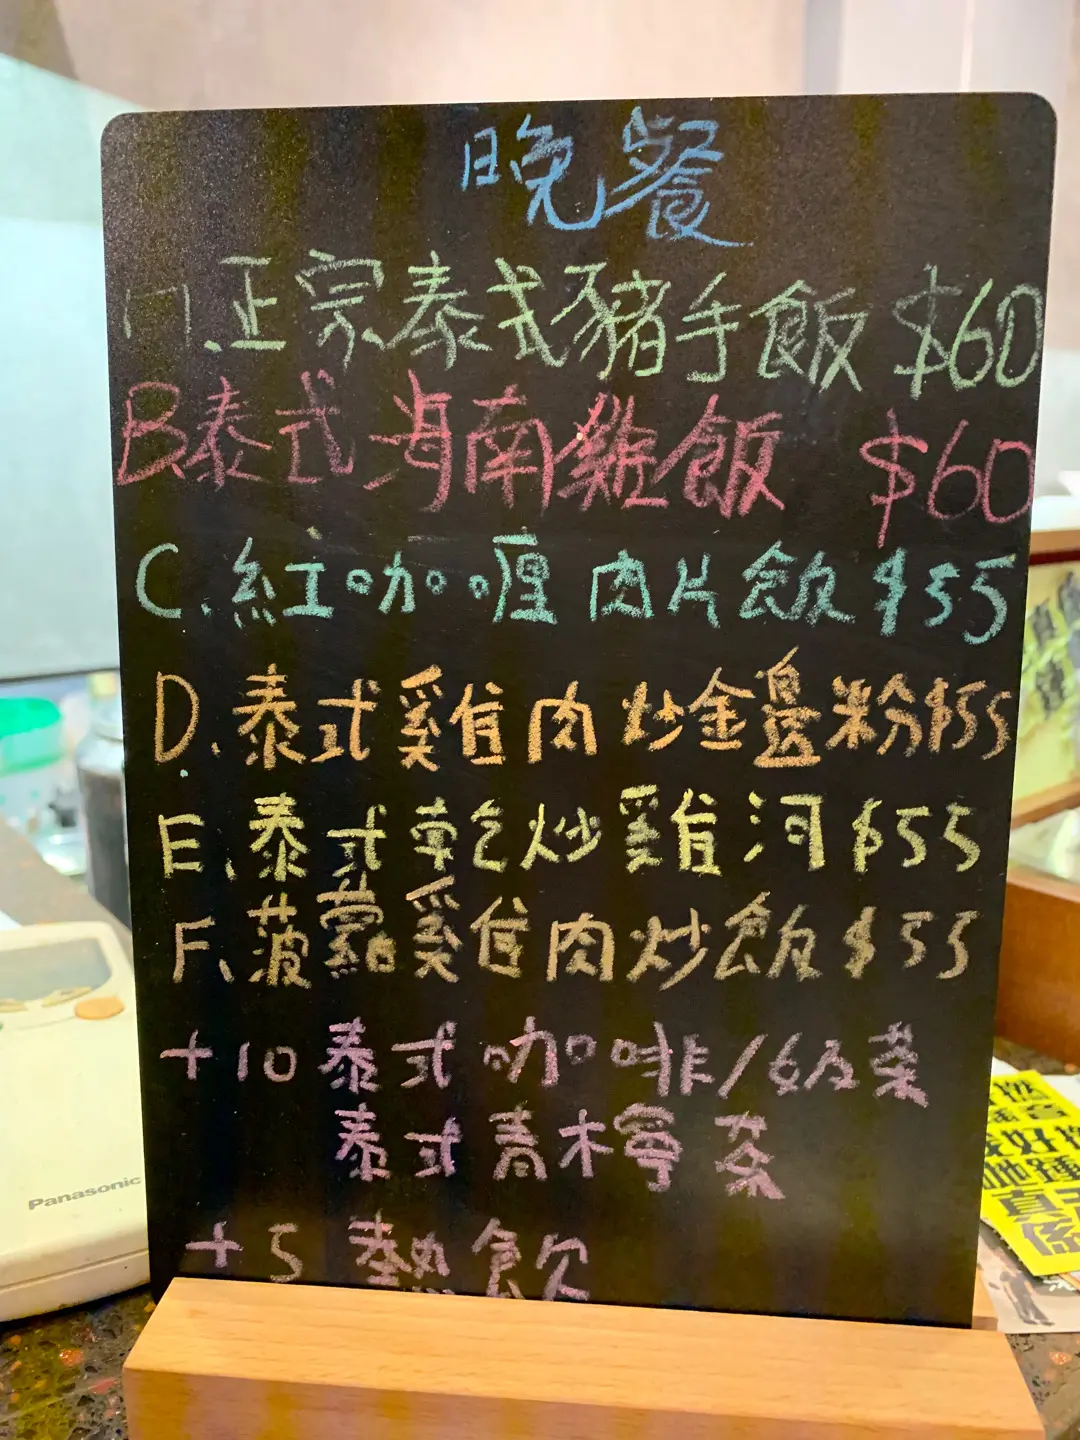 晚餐
A.正宗泰式豬手飯 $60
B.泰式海南雞飯 $60
C.紅咖喱肉片飯 $55
D.泰式雞肉炒金邊粉 $55
E.泰式乾炒雞河 $55
F.菠蘿雞肉炒飯 $55
+10 泰式咖啡/奶茶
泰式青檸茶
+5 熱飲
Panasonic